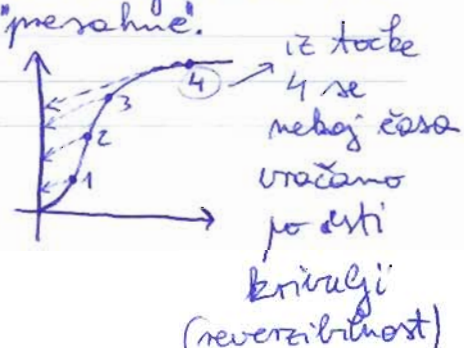 "presahne".
iz točke
4 se
nekaj časa
vračamo
po isti
krivulji
(reverzibilnost)
4
3
2
1